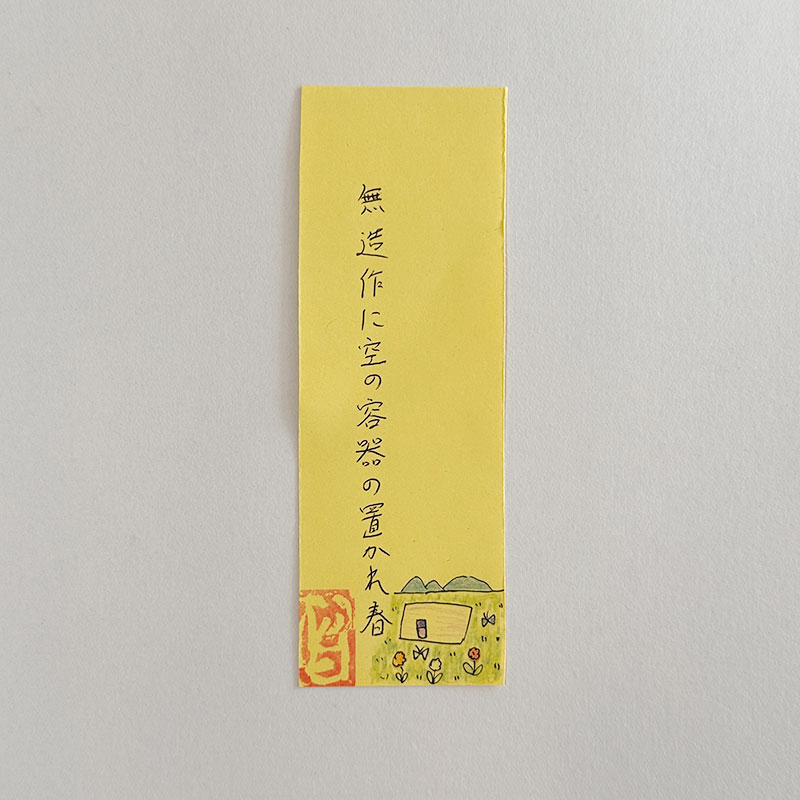 無造作に空の容器の置かれ春